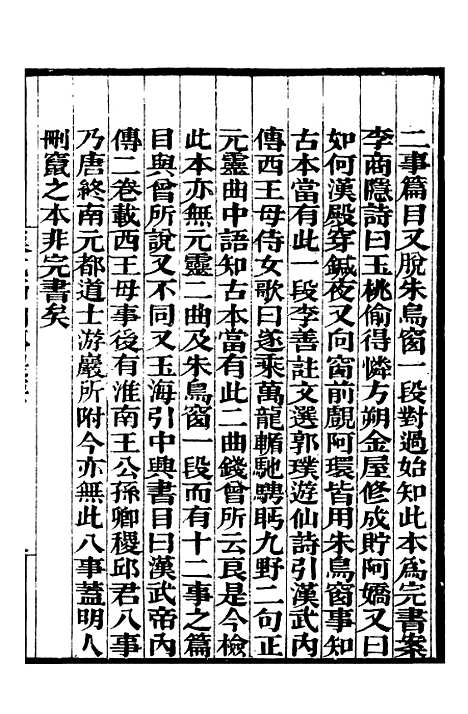 二事篇目又脫朱鳥窗一段對過始知此本爲完書案
李商隱詩曰玉桃偷得憐方朔金屋修成貯阿嬌又曰
如何漢殿穿鍼夜又向窗前覰阿環皆用朱鳥窗事知
古本當有此一段李善註文選郭璞遊仙詩引漢武內
傳西王母侍女歌曰遂乘萬龍輴馳騁眄九野二句正
元靈曲中語知古本當有此二曲錢曾所云良是今檢
此本亦無元靈二曲及朱鳥窗一段而有十二事之篇
目與曾所說又不同又玉海引中興書目曰漢武帝內
傳二卷載西王母事後有淮南王公孫卿稷邱君八事
乃唐終南元都道士游巖所附今亦無此八事蓋明人
刪竄之本非完書矣